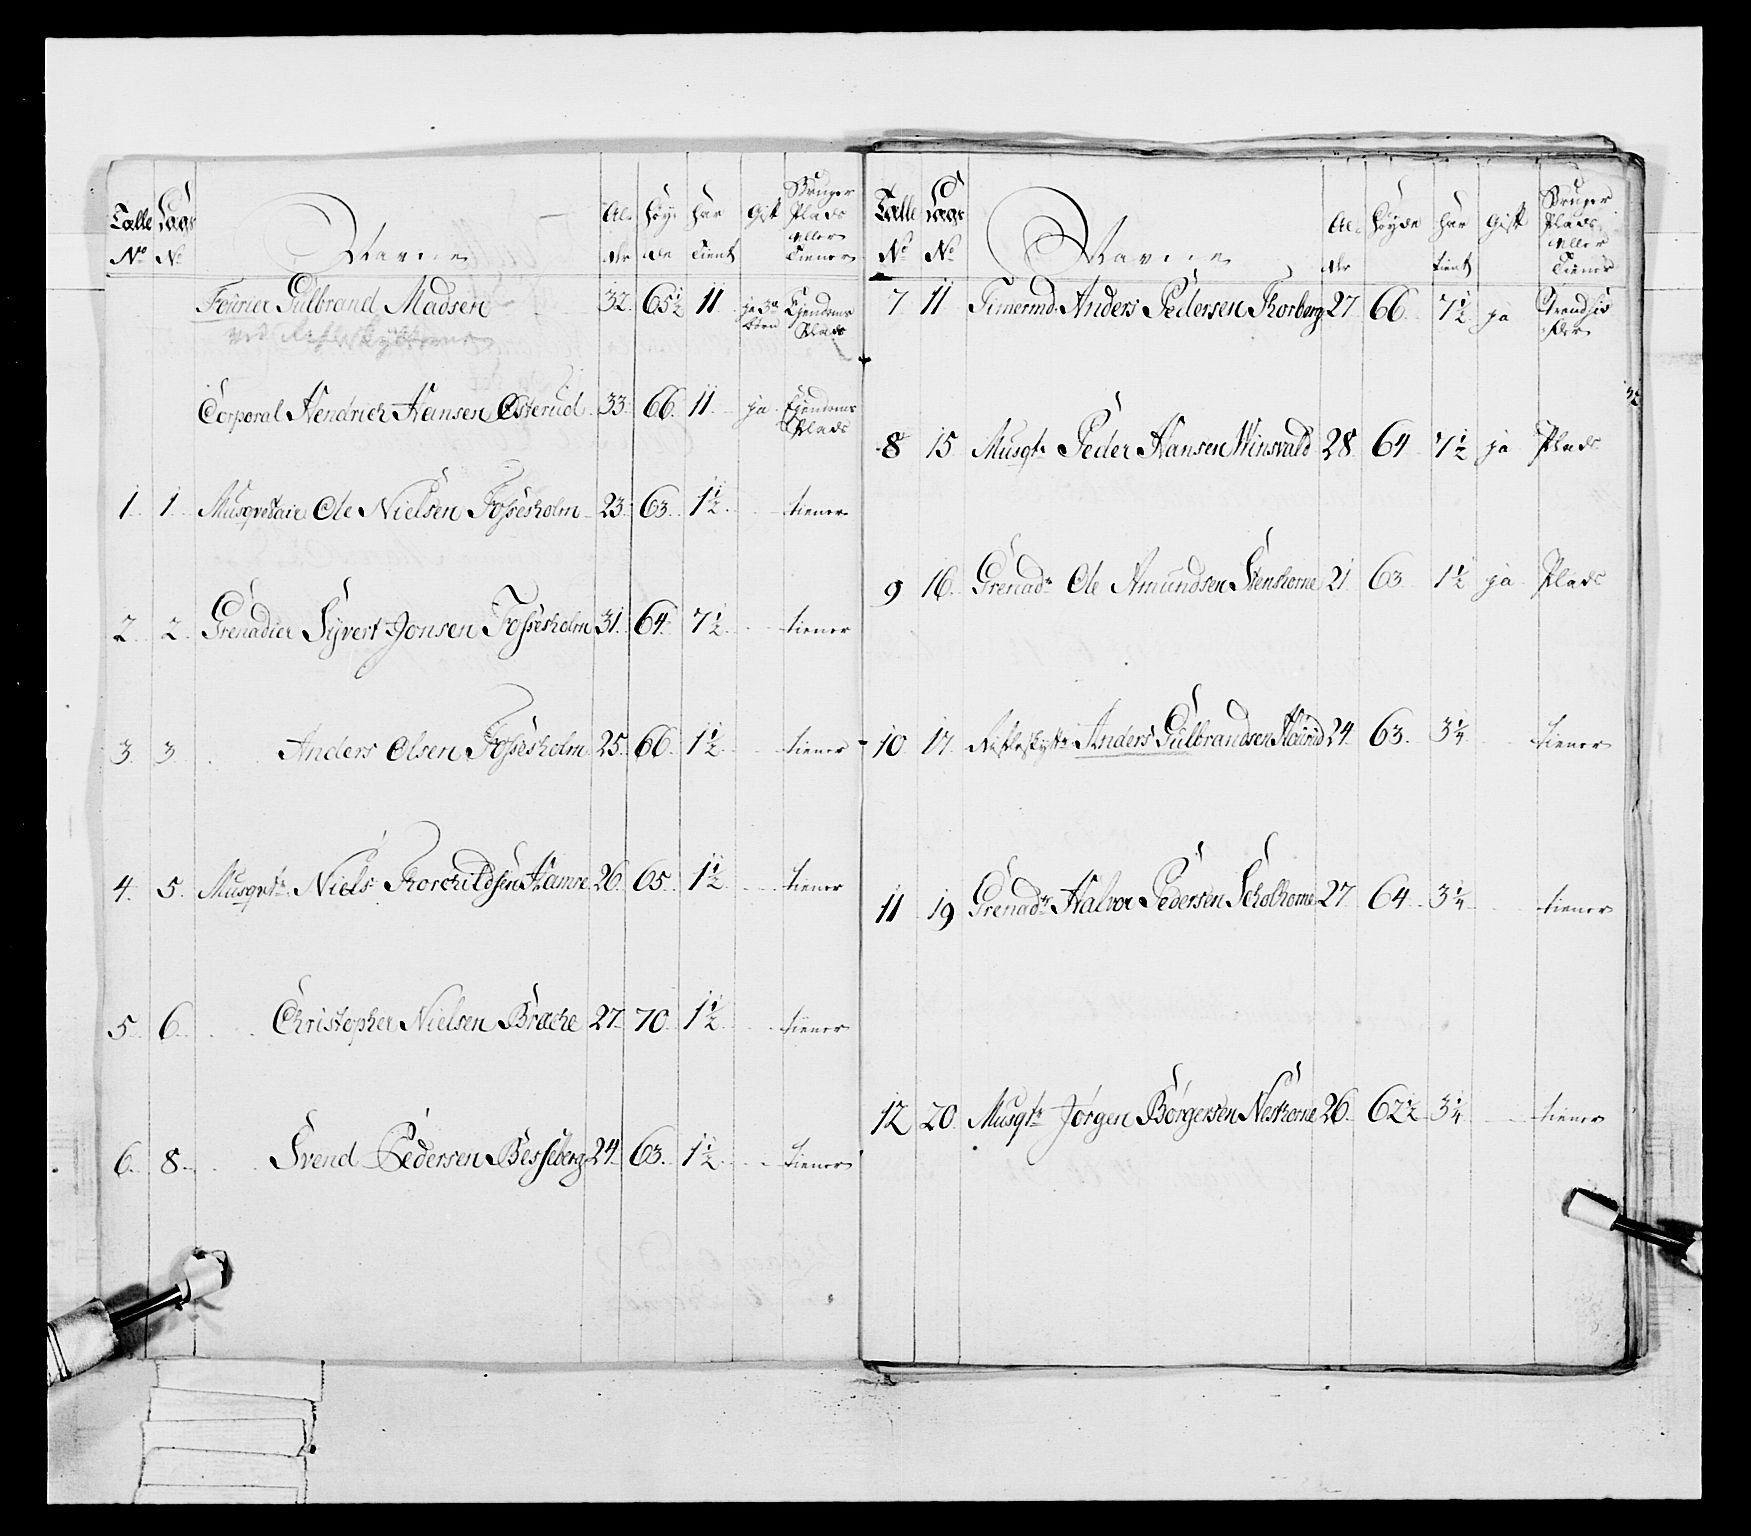 Talle Lægs Navne Al- høy- har Gift Bruger Plads eller Tiener
No No der de Tient
Fourier Gulbrand Madsen 32. 65½ 11 ja 3de børn Ejendoms Plads
ved
Corporal Hendrich Hansen Østerud 33. 66. 11. ja. Ejendoms Plads
1. 1. Musqvetair Ole Nielsen Fossesholm 23. 63. 1½. tiener
2. 2. Grenadier Syvert Jonsen Fossesholm 31. 64. 7½. tiener
3. 3. Anders Olsen Fossesholm 25. 66. 1½. tiener
4. 5. Musqvtr. Niels Thorchildsen Hamre 26. 65. 1½. tiener
5. 6. Christopher Nielsen Brache 27. 70. 1½. tiener
6. 8. Svend Pedersen Besseberg 24. 63. 1½. tiener
Talle Lægs Navne Al- høyde har Gift Bruger Plads eller Tiener
No No der tient
7 11 Timermd. Anders Pedersen Thorberg 27 66. 7½ ja
8 15 Musqtr Peder Hansen Winsvald 28 64 7½ ja Plads
9 16. Grenadr Ole Amundsen Stenshorne 21 63 1½ ja Plads
10 17. Rifleskytt Anders Gulbrandsen Hourud 24. 63. 3¼ tiener
11 19 Grenadr Halvor Pedersen Scholhorne 27 64 3¼ tiener
12 20. Musqtr Jørgen Børgersen Neshorne 26. 62½ 3¼ tiener